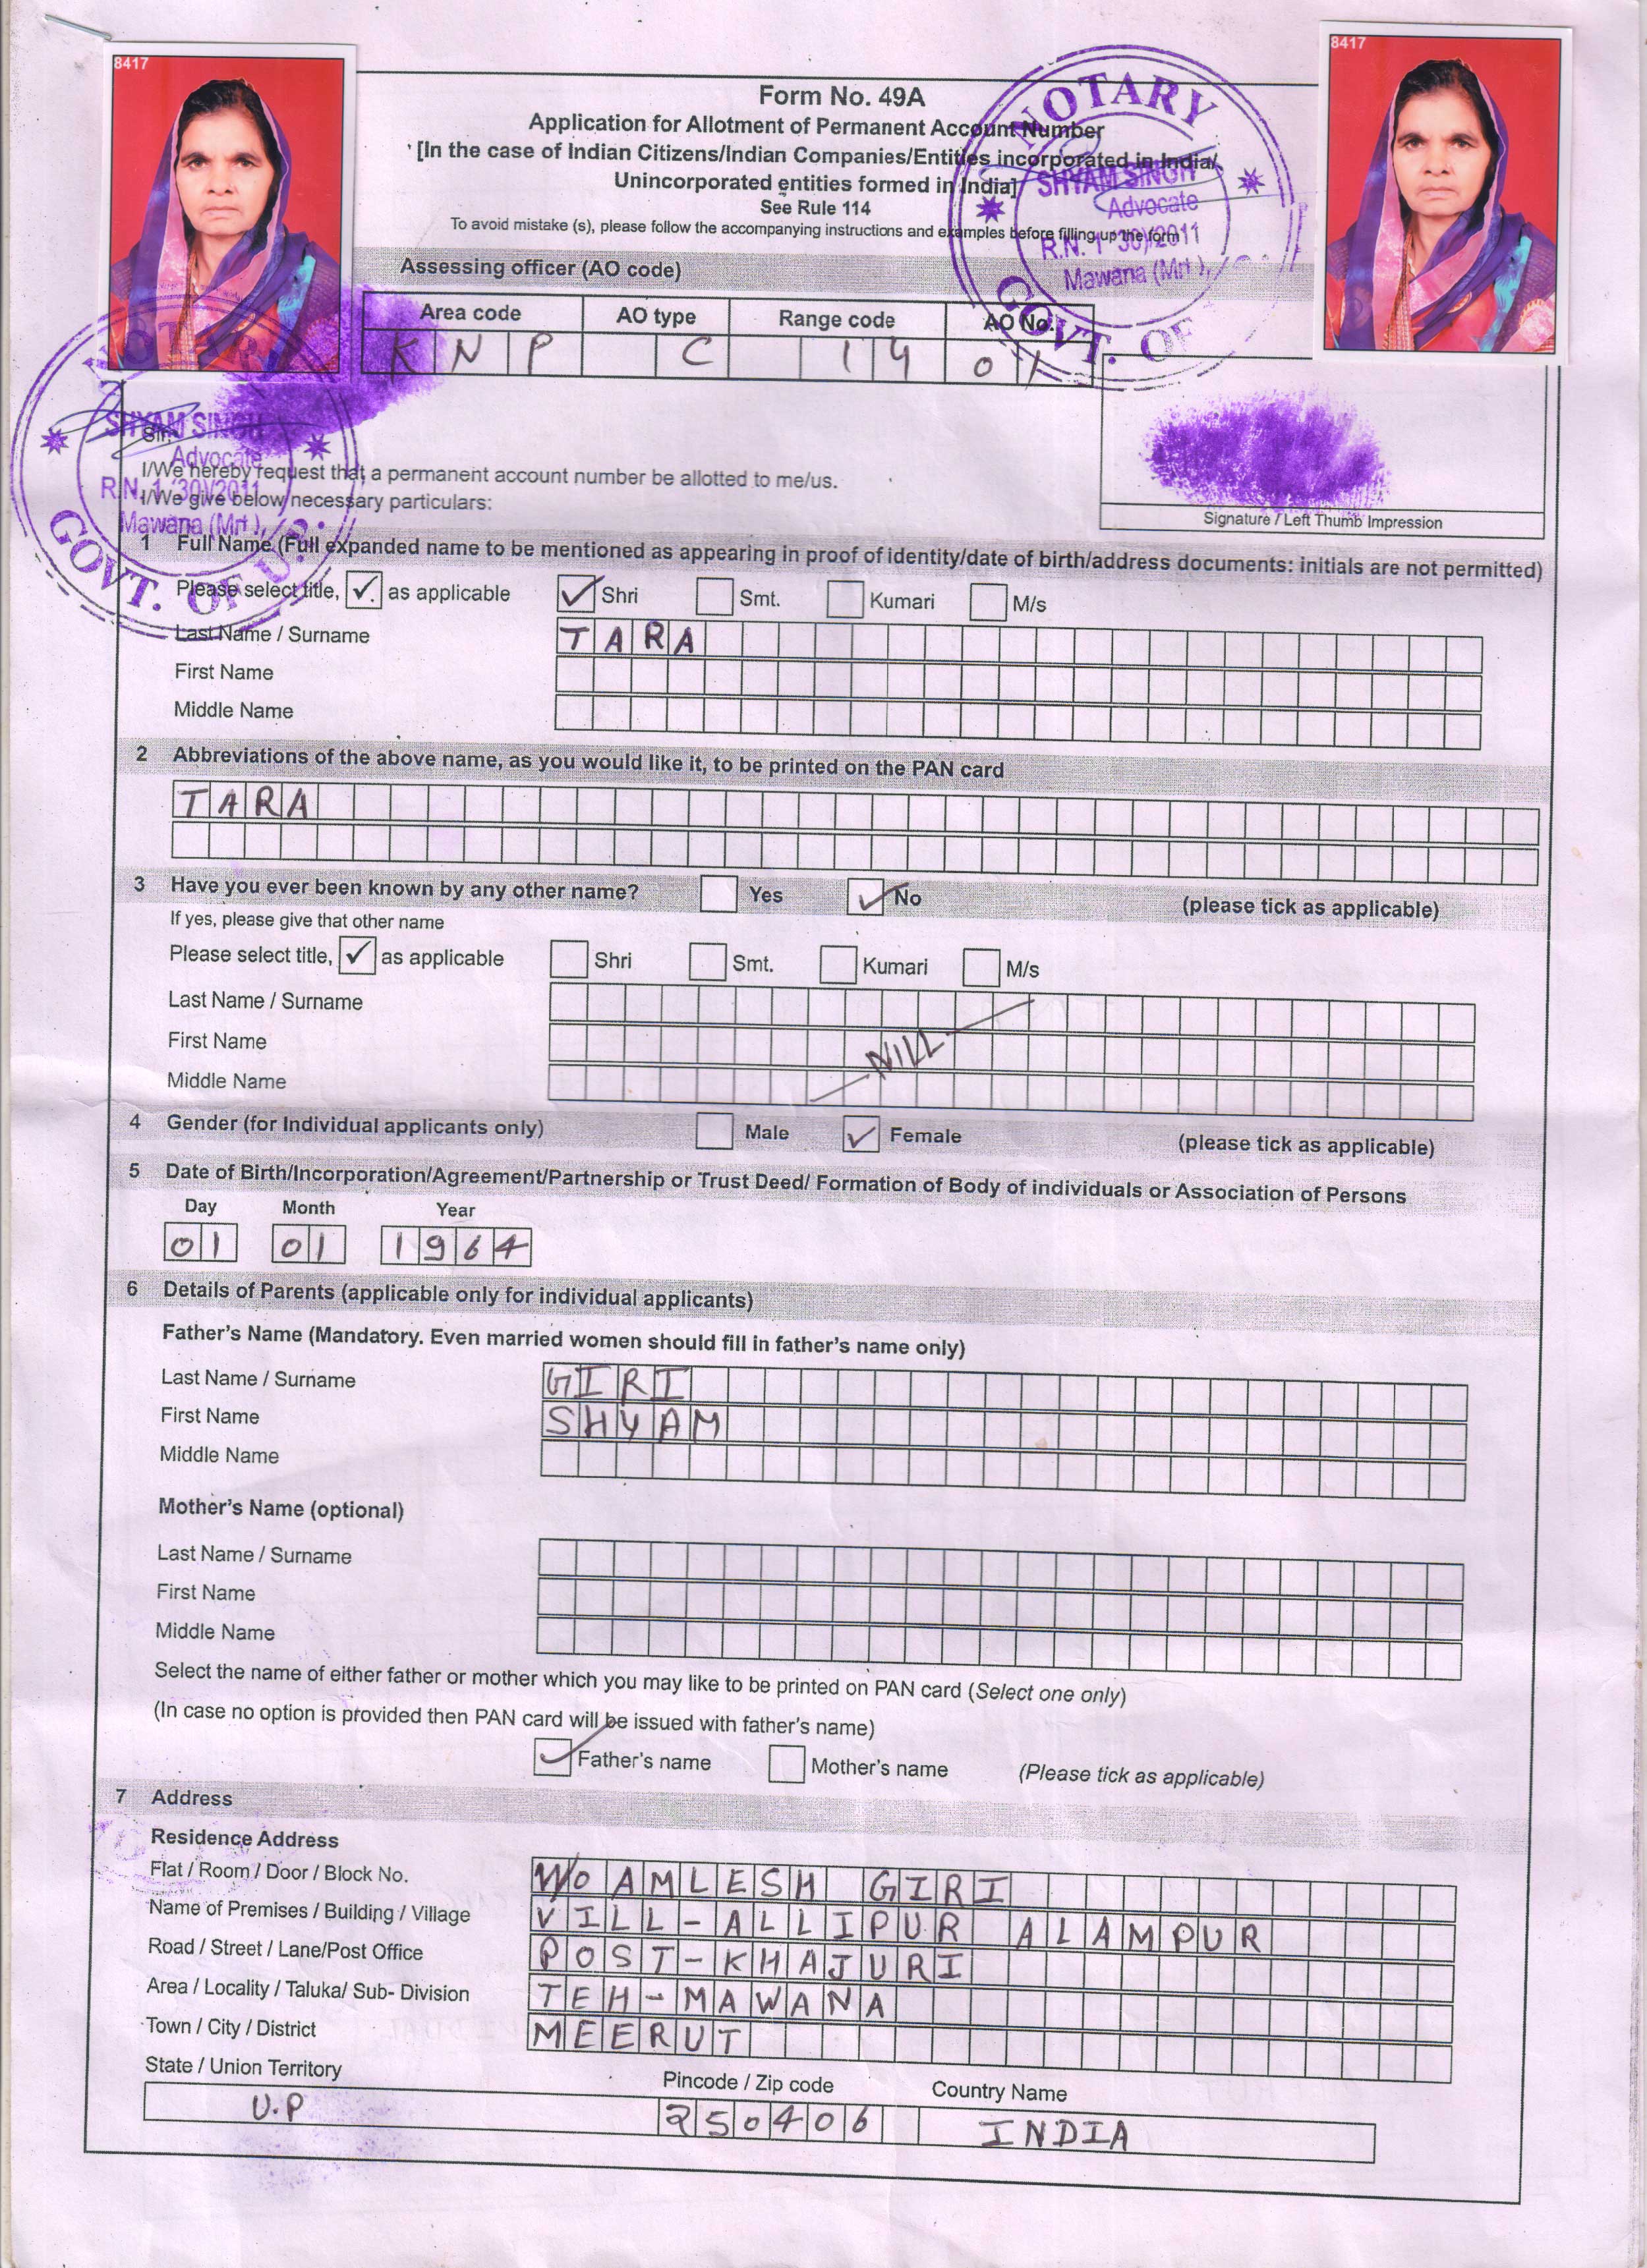 8417
8417
Form No. 49A
Application for Allotment of Permanent Account Number
[In the case of Indian Citizens/Indian Companies/Entities incorporated in India/
Unincorporated entities formed in India]
See Rule 114
To avoid mistake (s), please follow the accompanying instructions and examples before filling up the form
NOTARY
SHYAM SINGH
Advocate
Mawana (Mrt.),
GOVT. OF
Assessing officer (AO code)
Area code AO type Range code AO No.
K N P C 1 4 0 1
NOTARY
SHYAM SINGH
Advocate
Mawana (Mrt.),
GOVT. OF U.P.
Sir,
I/We hereby request that a permanent account number be allotted to me/us.
I/We give below necessary particulars:
Signature / Left Thumb Impression
1 Full Name (Full expanded name to be mentioned as appearing in proof of identity/date of birth/address documents: initials are not permitted)
Please select title, ✓ as applicable ✓ Shri Smt. Kumari M/s
Last Name / Surname TARA
First Name
Middle Name
2 Abbreviations of the above name, as you would like it, to be printed on the PAN card
TARA
3 Have you ever been known by any other name? Yes ✓ No (please tick as applicable)
If yes, please give that other name
Please select title, ✓ as applicable Shri Smt. Kumari M/s
Last Name / Surname
First Name NILL
Middle Name
4 Gender (for Individual applicants only) Male ✓ Female (please tick as applicable)
5 Date of Birth/Incorporation/Agreement/Partnership or Trust Deed/ Formation of Body of individuals or Association of Persons
Day Month Year
01 01 1964
6 Details of Parents (applicable only for individual applicants)
Father's Name (Mandatory. Even married women should fill in father's name only)
Last Name / Surname GIRI
First Name SHYAM
Middle Name
Mother's Name (optional)
Last Name / Surname
First Name
Middle Name
Select the name of either father or mother which you may like to be printed on PAN card (Select one only)
(In case no option is provided then PAN card will be issued with father's name)
✓ Father's name Mother's name (Please tick as applicable)
7 Address
Residence Address
Flat / Room / Door / Block No. W/O AMLESH GIRI
Name of Premises / Building / Village VILL-ALLIPUR ALAMPUR
Road / Street / Lane/Post Office POST-KHAJURI
Area / Locality / Taluka/ Sub- Division TEH-MAWANA
Town / City / District MEERUT
State / Union Territory Pincode / Zip code Country Name
U.P 250406 INDIA